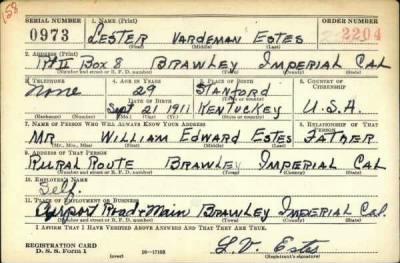 158
SERIAL NUMBER 1. NAME (Print) ORDER NUMBER
0973 LESTER VARDEMAN ESTES 2204
(First) (Middle) (Last)
2. ADDRESS (Print)
Rt II Box 8 BRAWLEY IMPERIAL CAL
(Number and street or R. F. D. number) (Town) (County) (State)
3. TELEPHONE 4. AGE IN YEARS 5. PLACE OF BIRTH 6. COUNTRY OF CITIZENSHIP
None 29 STANFORD
DATE OF BIRTH
Sept 21 1911 KENTUCKEY U.S.A.
(Mo.) (Day) (Yr.) (State or country)
7. NAME OF PERSON WHO WILL ALWAYS KNOW YOUR ADDRESS 8. RELATIONSHIP OF THAT PERSON
MR WILLIAM EDWARD ESTES FATHER
(Mr., Mrs., Miss) (First) (Middle) (Last)
9. ADDRESS OF THAT PERSON
RURAL ROUTE BRAWLEY IMPERIAL CAL
(Number and street or R. F. D. number) (Town) (County) (State)
10. EMPLOYER'S NAME
Self.
11. PLACE OF EMPLOYMENT OR BUSINESS
Airport Road & Main BRAWLEY IMPERIAL Cal.
(Number and street or R. F. D. number) (Town) (County) (State)
I AFFIRM THAT I HAVE VERIFIED ABOVE ANSWERS AND THAT THEY ARE TRUE.
REGISTRATION CARD
D. S. S. Form 1 (over) 16—17105 L. V. Estes
(Registrant's signature)